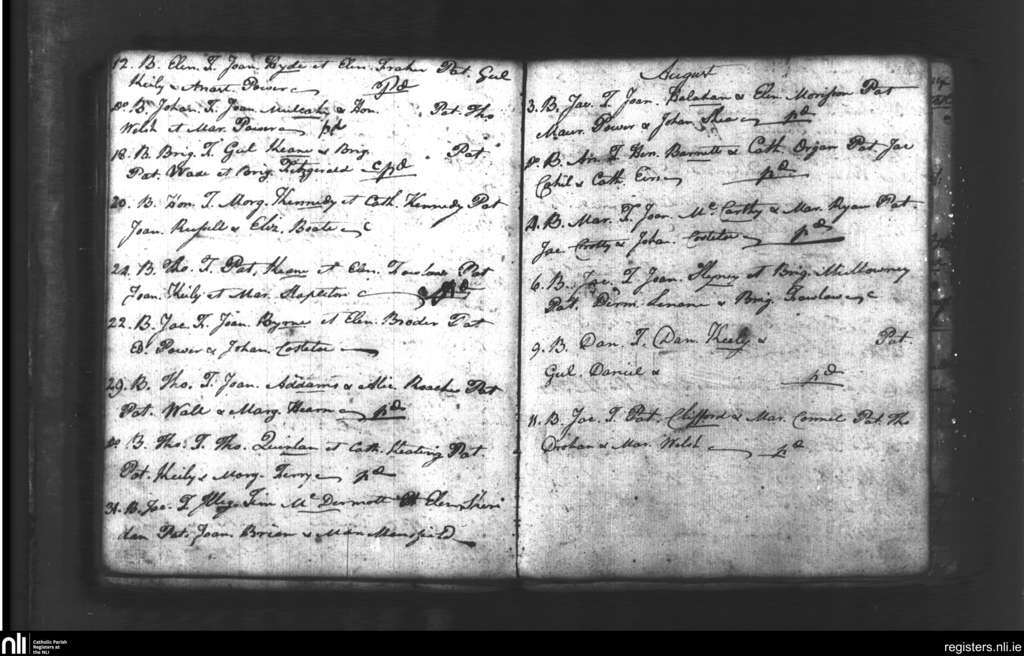 12. B. Elen. F. Joan. Hyde et Elen. Fraher Pat. Gul
Keily & Anast. Power pd
Do. B. Johan. F. Joan. Mulcahy & Hon. Pat. Tho
Welsh et Mar. Power pd
18. B. Brig. F. Gul Keane & Brig. Pat
Pat. Wade et Brig. Fitzgerald pd
20. B. Hon. F. Morg. Kennedy et Cath. Kennedy Pat
Joan. Russell & Eliz. Boate
24. B. Tho. F. Pat. Keane et Elen. Pat
Joan. Keily et Mar. Stapleton pd
22. B. Jac. F. Joan. Byrne et Elen. Broder Pat
Ed. Power & Johan. Costeloe
29. B. Tho. F. Joan. Addams & Alic. Roache Pat
Pat. Wall & Marg. Hearn pd
Do. B. Tho. F. Tho. Quinlan et Cath. Keating Pat
Pat. Keily & Marg. Terry pd
31. B. Jac. F. Mc Dermott et Elen. Sheri
dan Pat. Joan. Brien & Mar. Mansfield
August
3. B. Jac. F. Joan. & Elen. Morisson Pat
Maur. Power & Johan. Shea pd
Do. B. An. F. Hen. Barnett & Cath. Pat. Jac
Cahil & Cath. pd
4. B. Mar. F. Joan. Mc. Carthy & Mar. Ryan Pat.
Jac. Crotty & Johan. Costeloe pd
6. B. Jac. F. Joan. et Brig.
Pat. Derm. Lenane & Brig.
9. B. Dan. F. Dan. Keily & Pat.
Gul. Daniel & pd
11. B. Jac. F. Pat. Clifford & Mar. Connel Pat. Tho
Drohan & Mar. Welsh pd
nli
Catholic Parish
Registers at
the NLI
registers.nli.ie